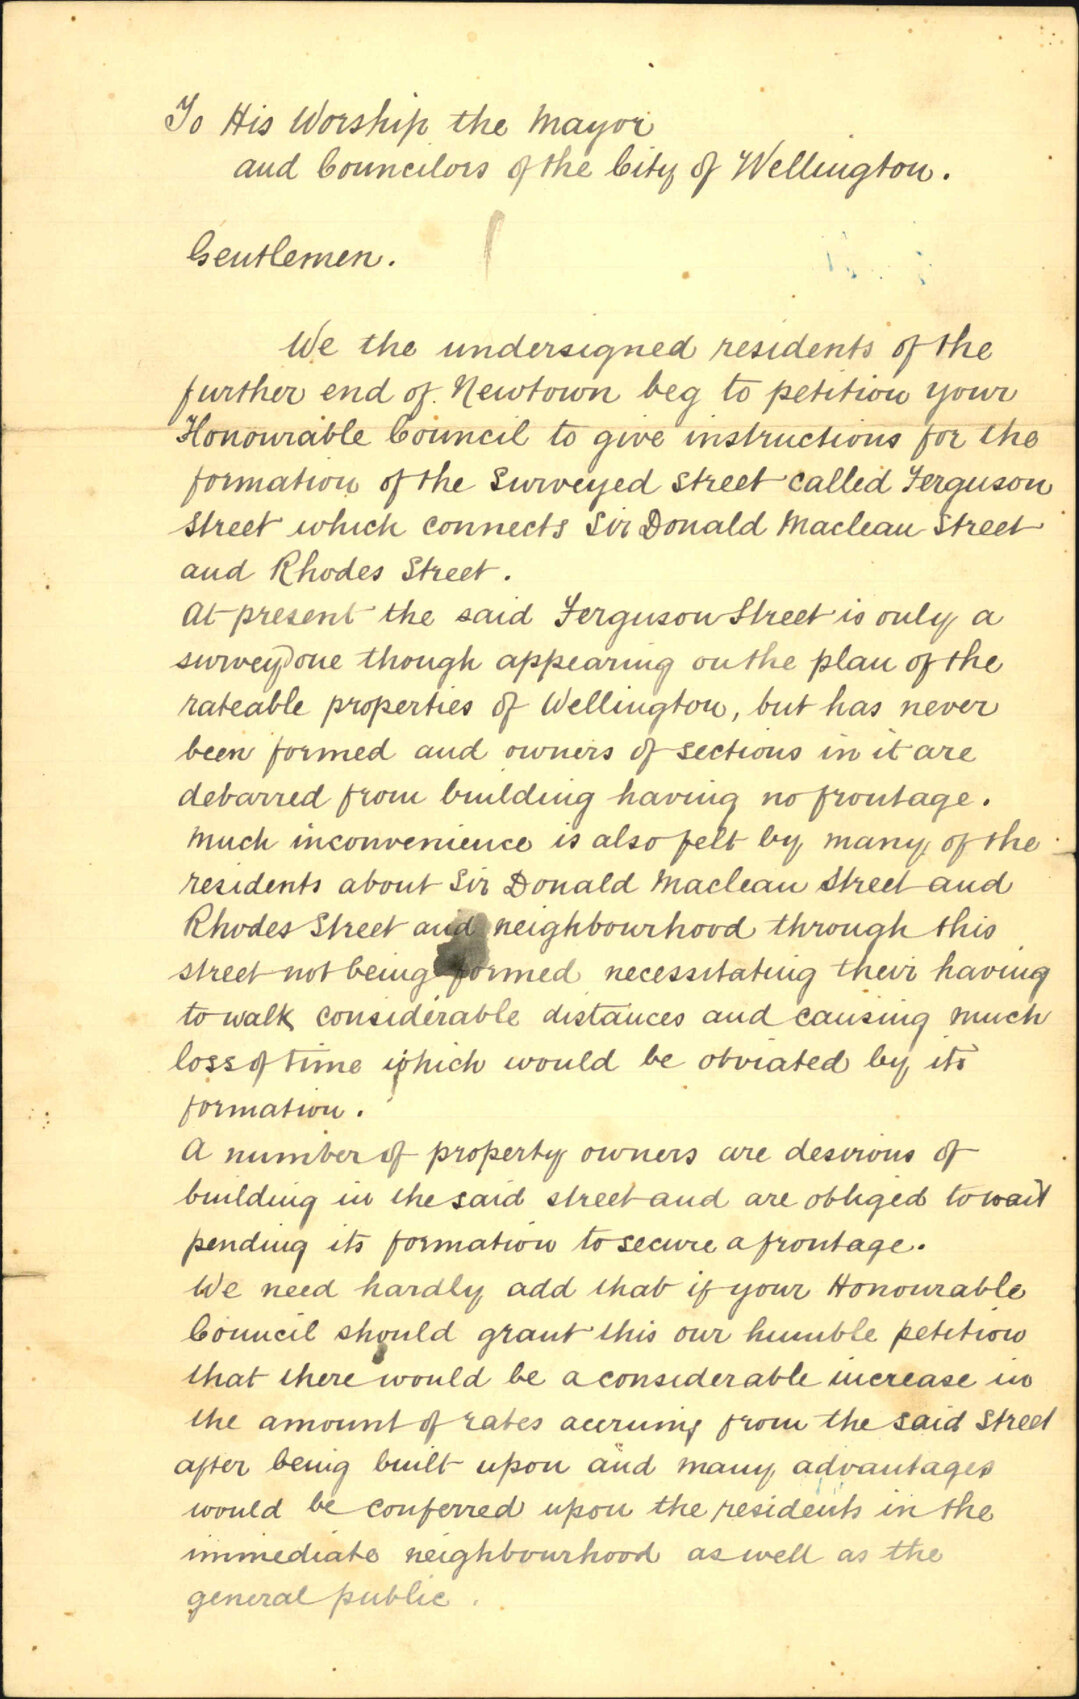 To His Worship the Mayor
and Councilors of the City of Wellington.
Gentlemen.
We the undersigned residents of the
further end of Newtown beg to petition your
Honourable Council to give instructions for the
formation of the surveyed street called Ferguson
Street which connects Sir Donald Maclean Street
and Rhodes Street.
At present the said Ferguson Street is only a
survey one though appearing on the plan of the
rateable properties of Wellington, but has never
been formed and owners of sections in it are
debarred from building having no frontage.
Much inconvenience is also felt by many of the
residents about Sir Donald Maclean Street and
Rhodes Street and neighbourhood through this
street not being formed necessitating their having
to walk considerable distances and causing much
loss of time which would be obviated by its
formation.
A number of property owners are desirous of
building in the said street and are obliged to wait
pending its formation to secure a frontage.
We need hardly add that if your Honourable
Council should grant this our humble petition
that there would be a considerable increase in
the amount of rates accruing from the said Street
after being built upon and many advantages
would be conferred upon the residents in the
immediate neighbourhood as well as the
general public.